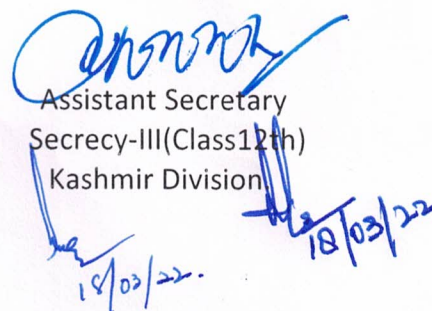 Assistant Secretary
Secrecy-III(Class12th)
Kashmir Division
18/03/22
18/03/22.